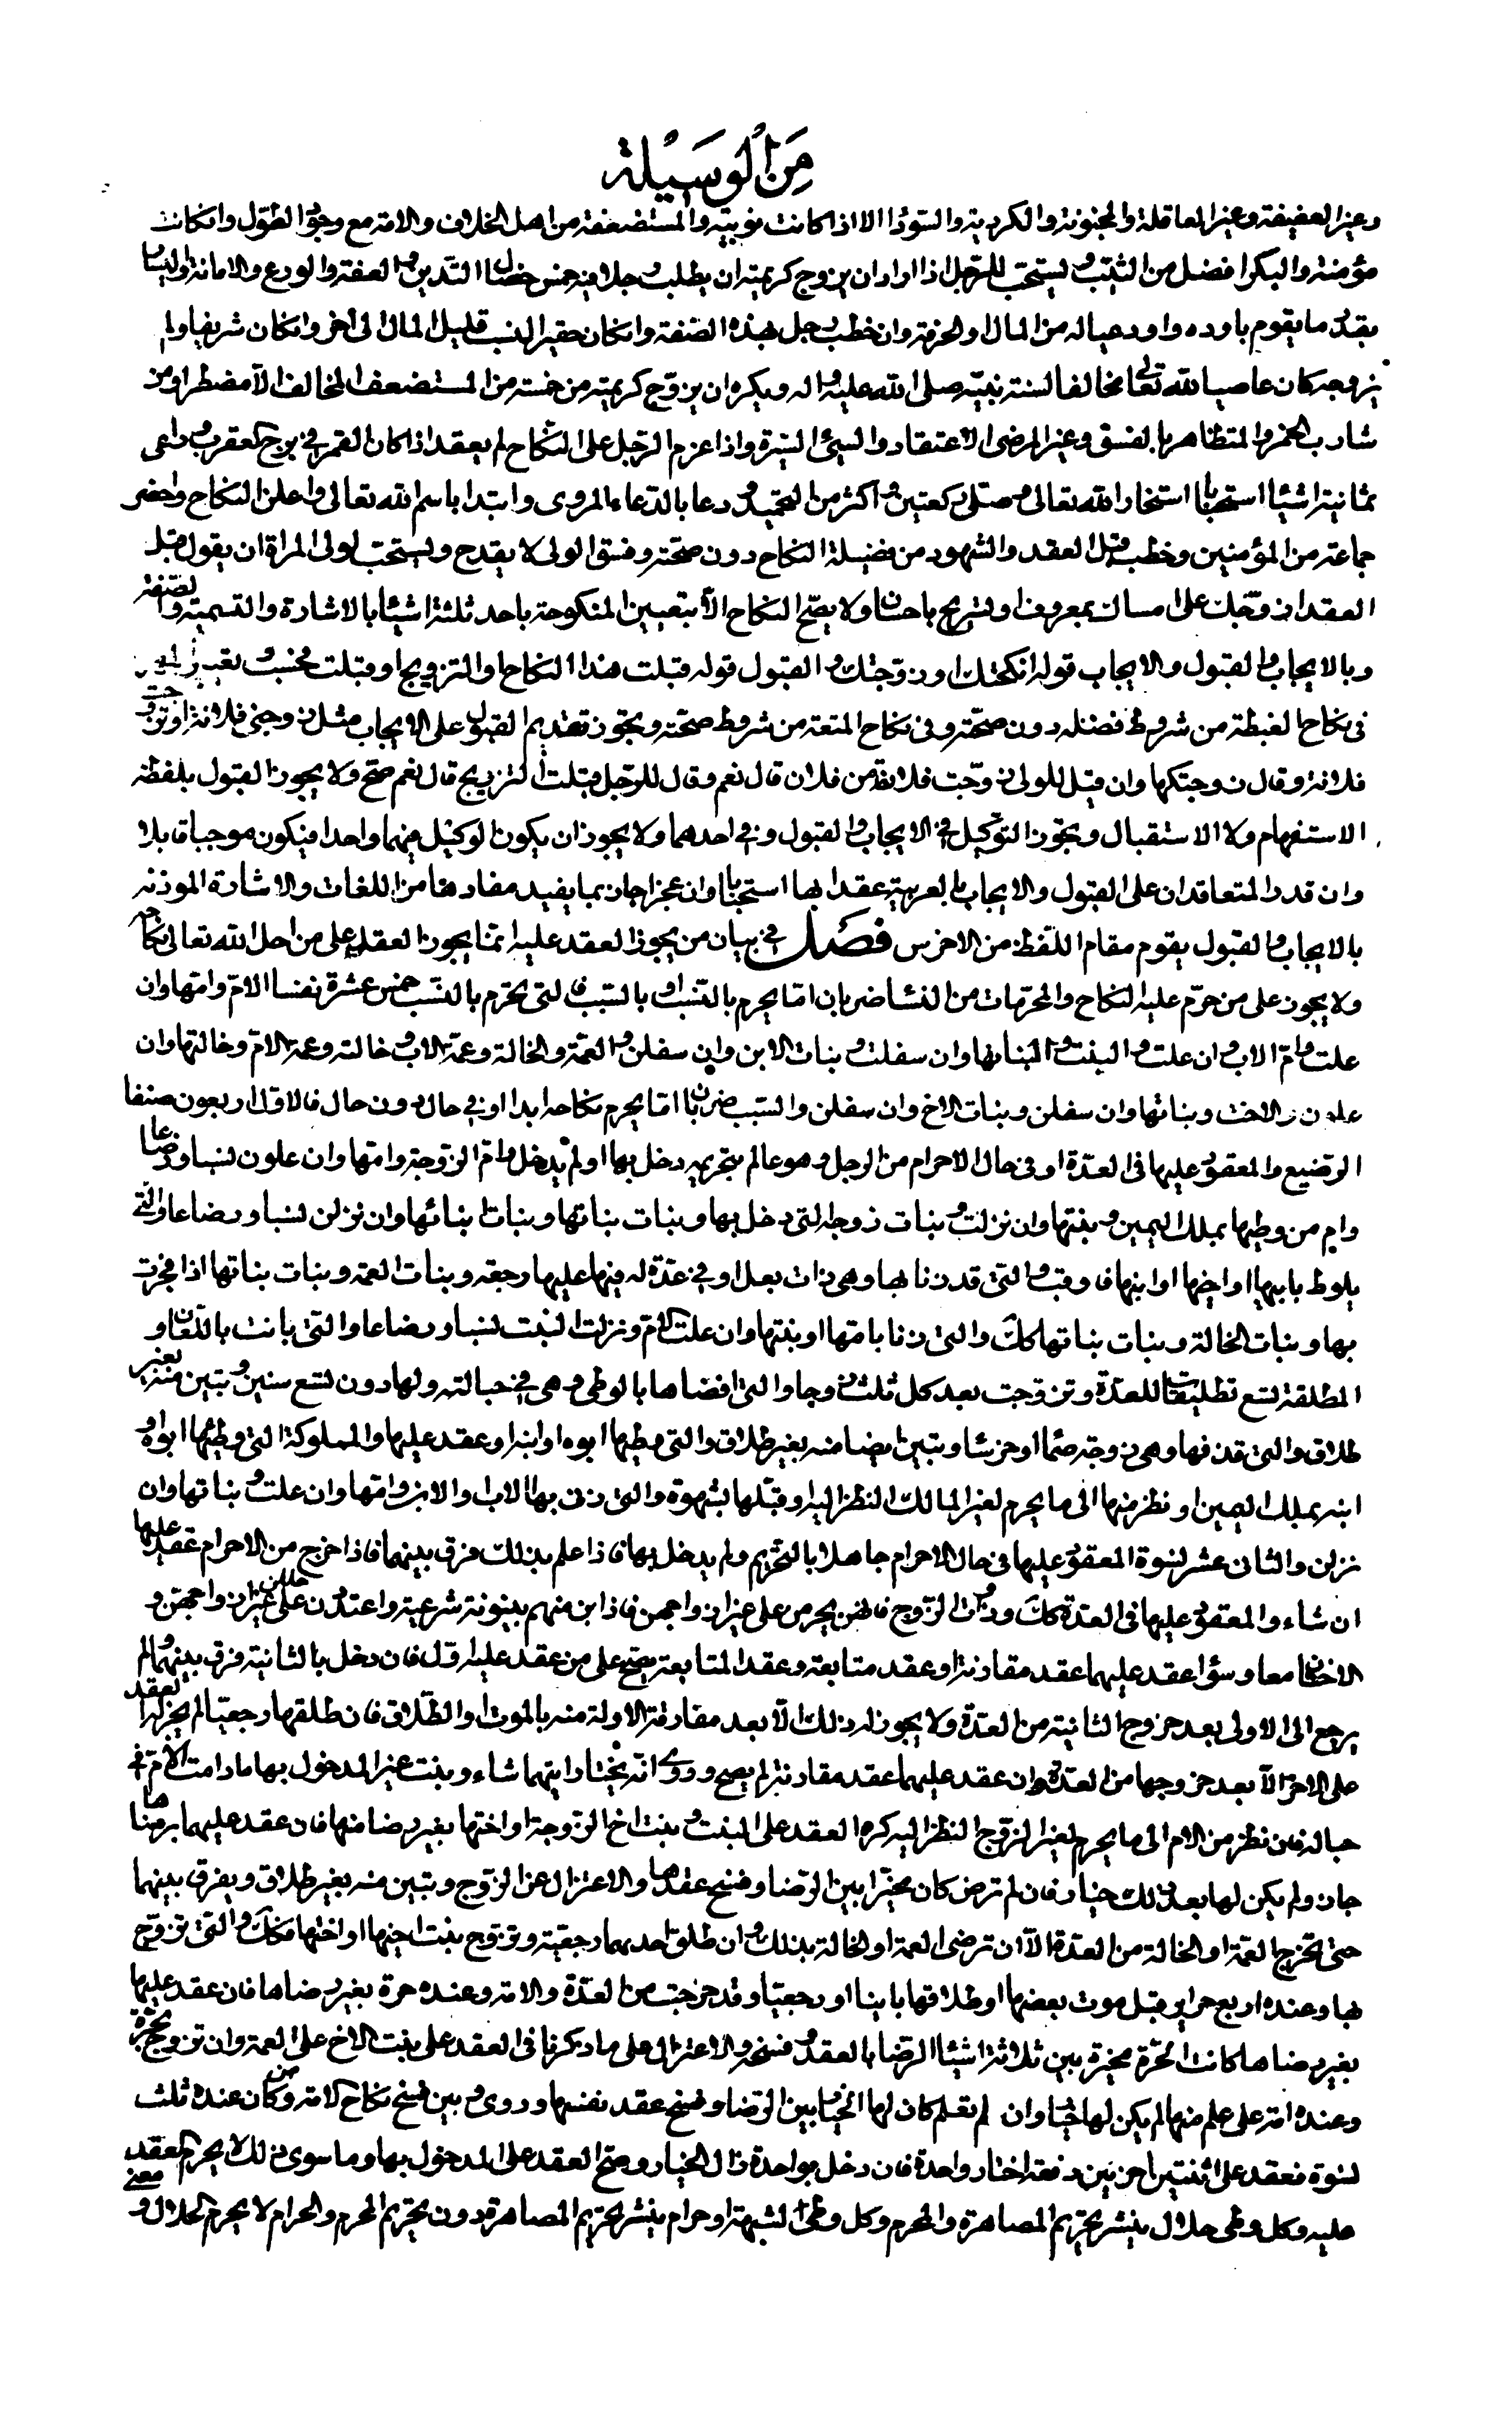 مِنَ الْوَسِيْلة
وغير العفيفة وغير العاقلة والمجنونة والكردية والسودا الا اذا كانت نوبية والمستضعفة من اهل الخلاف والامة مع وجود الطول وان كانت
مؤمنة والبكر افضل من الثيب ويستحب للرجل اذا اراد ان يزوج كريمته ان يطلب رجلا فيه خمس خصال التدين والعفة والورع والامانة واليسار
بقدر ما يقوم باوده واود عياله من المال او الحرفة وان خطب رجل بهذه الصفة وان كان حقير النسب قليل المال الى اخر وان كان شريفا ولم
يزوجه كان عاصيا لله تعالى مخالفا لسنة نبيه صلى الله عليه واله ويكره ان يزوج كريمته من خمسة من المستضعف المخالف الا مضطرا ومن
شارب الخمر والمتظاهر بالفسق وغير المرضى الاعتقاد والسيئ السيرة واذا عزم الرجل على النكاح لم يعقد اذا كان القمر في برج العقرب وراعى
ثمانية اشيا استحبابا استخار الله تعالى وصلى ركعتين واكثر من التحميد ودعا بالدعاء المروى وابتدا باسم الله تعالى واعلن النكاح واحضر
جماعة من المؤمنين وخطب قبل العقد والشهود من فضيلة النكاح دون صحته وفسق الولى لا يقدح ويستحب لولى المراة ان يقول قبل
العقد ازوجك على امساك بمعروف او تسريح باحسان ولا يصح النكاح الا بتعيين المنكوحة باحد ثلثة اشيا بالاشارة والتسمية والصفة
وبالايجاب والقبول والايجاب قوله انكحتك او زوجتك والقبول قوله قبلت هذا النكاح او التزويج او قبلت فحسب
فى نكاح الغبطة من شروط فضله دون صحته وفى نكاح المتعة من شروط صحته ويجوز تقديم القبول على الايجاب مثل زوجنى فلانة او تزوجت
فلانة وقال زوجتكها وان قيل للولى زوجت فلانة من فلان قال نعم وقال للرجل قبلت التزويج قال نعم صح ولا يجوز القبول بلفظه
الاستفهام ولا الاستقبال ويجوز التوكيل فى الايجاب والقبول وفى احدهما ولا يجوز ان يكون الوكيل فيهما واحدا فيكون موجبا قابلا
وان قدر المتعاقدان على القبول والايجاب بالعربية عقدا بها استحبابا وان عجزا جاز بما يفيد مفادها من اللغات والاشارة الموذنه
بالايجاب والقبول يقوم مقام اللفظ من الاخرس فصل فى بيان من يجوز العقد عليه انما يجوز العقد على من احل الله تعالى نكاحه
ولا يجوز على من حرم عليه النكاح والمحرمات من النسا ضربان اما يحرم بالنسب او بالسبب فالتى يحرم بالنسب خمس عشرة نفسا الام وامها وان
علت وام الاب وان علت والبنت وبناتها وان سفلت وبنات الابن وان سفلن والعمة والخالة وعمة الاب وخالته وعمة الام وخالتها وان
علون والاخت وبناتها وان سفلن وبنات الاخ وان سفلن والسبب ضربان اما يحرم نكاحه ابدا او فى حال دون حال فالاول اربعون صنفا
الرضيع والمعقود عليها فى العدة او فى حال الاحرام من الرجل وهو عالم بتحريمه دخل بها او لم يدخل وام الزوجة وامها وان علون نسبا ورضاعا
وام من وطيها بملك اليمين وبنتها وان نزلت وبنات زوجه التى دخل بها وبنات بناتها وبنات بنائها وان نزلن نسبا ورضاعا والتى
يلوط بابيها او اخيها او ابنها فاوقب والتى قد زنا بها وهى ذات بعل او فى عدة له فيها عليها رجعة وبنات العمة وبنات بناتها اذا فجرت
بها وبنات الخالة وبنات بناتها كك والتى زنا بامها او بنتها وان علت الام ونزلت البنت نسبا ورضاعا والتى بانت باللعان او
المطلقة تسع تطليقات للعدة وتزوجت بعد كل ثلث زوجا والتى افضاها بالوطى وهى فى حبالته ولها دون تسع سنين وتبين منه بغير
طلاق والتى قذفها وهى زوجته صما او خرسا وتبين ايضا منه بغير طلاق والتى وطيها ابوه او ابنه او عقد عليها والمملوكة التى وطئها ابوه او
ابنه بملك اليمين او نظر منها الى ما يحرم لغير المالك النظر اليه او قبلها بشهوة والتى زنى بها الاب او الابن وامها وان علت وبناتها وان
نزلن والثانى عشر نسوة المعقود عليها فى حال الاحرام جاهلا بالتحريم ولم يدخل بها فاذا علم بذلك فرق بينهما فاذا خرج من الاحرام عقد عليها
ان شاء والمعقود عليها فى العدة كك وذوات الزوج فانهن يحرمن على غير ازواجهن فاذا بن منهم بينونة شرعية واعتددن حللن على غير ازواجهن و
الاختان معا وسوا عقد عليهما عقد مقارنة او عقد متابعة وعقد المتابعة يصح على من عقد عليها اول فان دخل بالثانية فرق بينهما ولم
يرجع الى الاولى بعد خروج الثانية من العدة ولا يجوز له ذلك الا بعد مفارقة الاولة منه بالموت او الطلاق فان طلقها رجعيا لم يجز له العقد
على الاخرى الا بعد خروجها من العدة وان عقد عليهما عقد مقارنة لم يصح وروى انه يختار ايتهما شاء وبنت غير المدخول بها ما دامت الام فى
حباله فان نظر من الام الى ما يحرم لغير الزوج النظر اليه كره العقد على البنت وبنت اخ الزوجة او اختها بغير رضا منها فان عقد عليهما برضاها
جاز ولم يكن لها بعد ذلك خيار فان لم ترض كان مخيرا بين الرضا وفسخ عقدها والاعتزال عن الزوج وتبين منه بغير طلاق ويفرق بينهما
حتى تخرج العمة او الخالة من العدة الا ان ترضى العمة او الخالة بذلك وان طلق احديهما رجعية وتزوج بنت اخيها او اختها فكك والتى تزوج
بها وعنده اربع حراير قبل موت بعضها او طلاقها باينا او رجعيا وقد خرجت من العدة والامة وعنده حرة بغير رضاها فان عقد عليها
بغير رضاها كانت الحرة مخيرة بين ثلاثة اشيا الرضا بالعقد وفسخه والاعتزال على ما ذكرنا فى العقد على بنت الاخ على العمة وان تزوج بحرة
وعنده امة على علم منها لم يكن لها خيار وان لم تعلم كان لها الخيار بين الرضا وفسخ عقد نفسها وروى وبين فسخ نكاح الامة ومن كان عنده ثلث
نسوة فعقد على اثنتين اخريين دفعة اختار واحدة فان دخل بواحدة زال الخيار وصح العقد على المدخول بها وما سوى ذلك لا يحرم العقد
عليه وكل وطى حلال ينشر تحريم المصاهرة والمحرم وكل وطى لشبهة او حرام ينشر تحريم المصاهرة دون تحريم المحرم والحرام لا يحرم الحلال و معنى